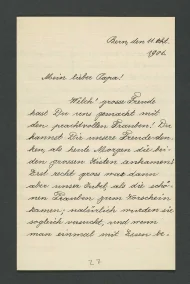 Bern, den 11. Okt.
1906.
Mein lieber Papa!
Welch' grosse Freude
hast Du uns gemacht mit
den prachtvollen Trauben! Du
kannst Dir unsere Freude den-
ken, als heute Morgen die bei-
den grossen Kisten ankamen!
Erst recht gross war dann
aber unser Jubel, als die schö-
nen Trauben zum Vorschein
kamen; natürlich wurden sie
sogleich versucht, und wenn
man einmal mit Essen be-
27